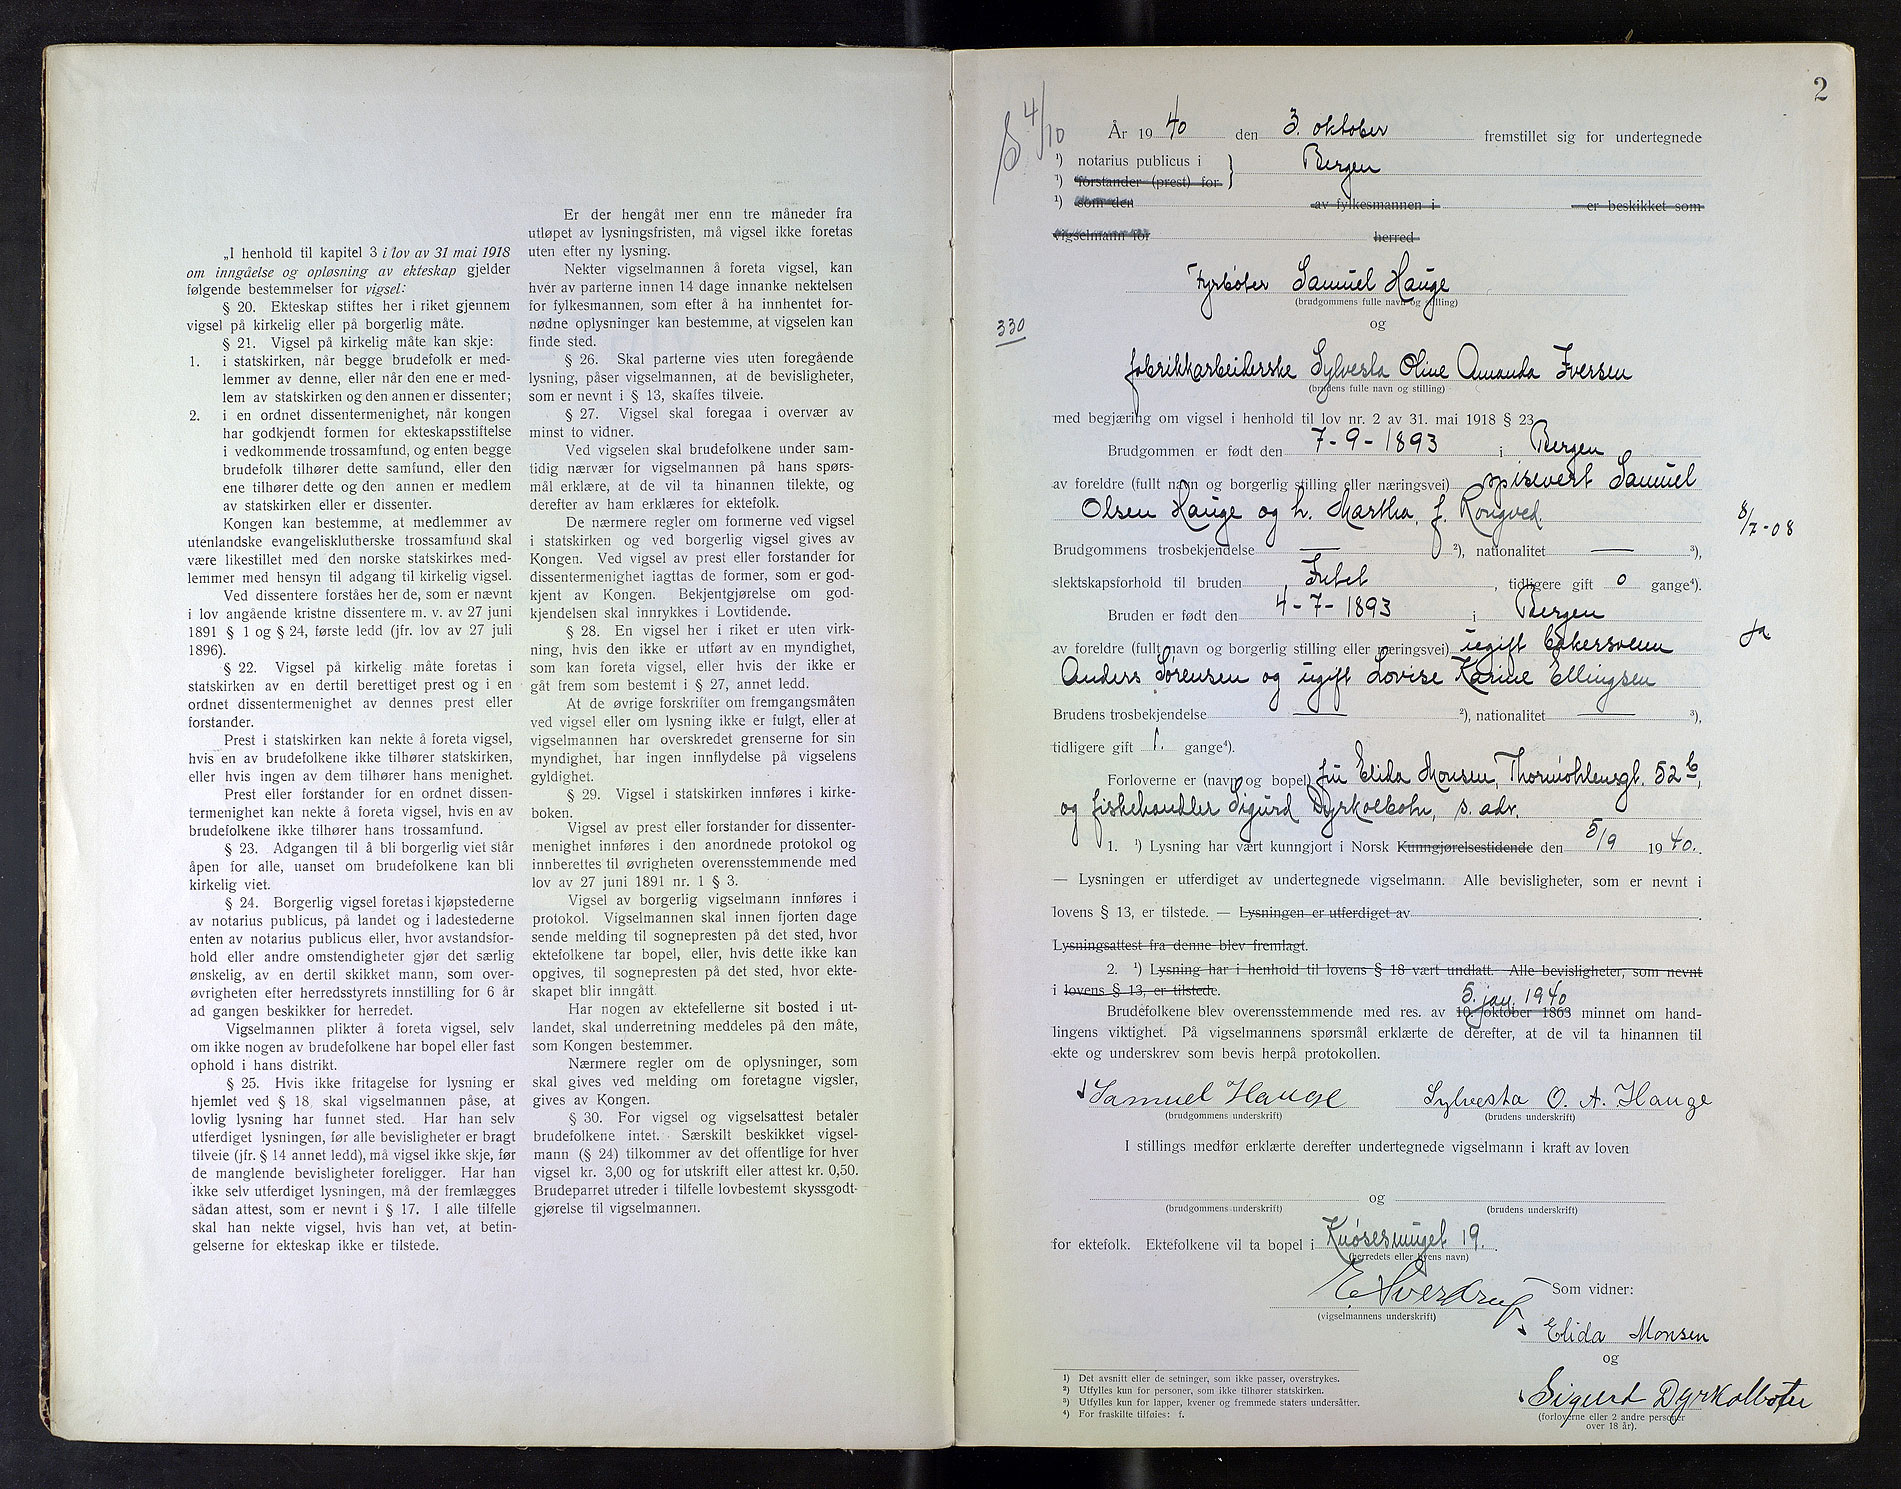 „I henhold til kapitel 3 i lov av 31 mai 1918
om inngåelse og opløsning av ekteskap gjelder
følgende bestemmelser for vigsel:
§ 20. Ekteskap stiftes her i riket gjennem
vigsel på kirkelig eller på borgerlig måte.
§ 21. Vigsel på kirkelig måte kan skje:
1. i statskirken, når begge brudefolk er med-
lemmer av denne, eller når den ene er med-
lem av statskirken og den annen er dissenter;
2. i en ordnet dissentermenighet, når kongen
har godkjendt formen for ekteskapsstiftelse
i vedkommende trossamfund, og enten begge
brudefolk tilhører dette samfund, eller den
ene tilhører dette og den annen er medlem
av statskirken eller er dissenter.
Kongen kan bestemme, at medlemmer av
utenlandske evangelisklutherske trossamfund skal
være likestillet med den norske statskirkes med-
lemmer med hensyn til adgang til kirkelig vigsel.
Ved dissentere forståes her de, som er nævnt
i lov angående kristne dissentere m. v. av 27 juni
1891 § 1 og § 24, første ledd (jfr. lov av 27 juli
1896).
§ 22. Vigsel på kirkelig måte foretas i
statskirken av en dertil berettiget prest og i en
ordnet dissentermenighet av dennes prest eller
forstander.
Prest i statskirken kan nekte å foreta vigsel,
hvis en av brudefolkene ikke tilhører statskirken,
eller hvis ingen av dem tilhører hans menighet.
Prest eller forstander for en ordnet dissen-
termenighet kan nekte å foreta vigsel, hvis en av
brudefolkene ikke tilhører hans trossamfund.
§ 23. Adgangen til å bli borgerlig viet står
åpen for alle, uanset om brudefolkene kan bli
kirkelig viet.
§ 24. Borgerlig vigsel foretas i kjøpstederne
av notarius publicus, på landet og i ladestederne
enten av notarius publicus eller, hvor avstandsfor-
hold eller andre omstendigheter gjør det særlig
ønskelig, av en dertil skikket mann, som over-
øvrigheten efter herredsstyrets innstilling for 6 år
ad gangen beskikker for herredet.
Vigselmannen plikter å foreta vigsel, selv
om ikke nogen av brudefolkene har bopel eller fast
ophold i hans distrikt.
§ 25. Hvis ikke fritagelse for lysning er
hjemlet ved § 18, skal vigselmannen påse, at
lovlig lysning har funnet sted. Har han selv
utferdiget lysningen, før alle bevisligheter er bragt
tilveie (jfr. § 14 annet ledd), må vigsel ikke skje, før
de manglende bevisligheter foreligger. Har han
ikke selv utferdiget lysningen, må der fremlægges
sådan attest, som er nevnt i § 17. I alle tilfelle
skal han nekte vigsel, hvis han vet, at betin-
gelserne for ekteskap ikke er tilstede.
Er der hengåt mer enn tre måneder fra
utløpet av lysningsfristen, må vigsel ikke foretas
uten efter ny lysning.
Nekter vigselmannen å foreta vigsel, kan
hver av parterne innen 14 dage innanke nektelsen
for fylkesmannen, som efter å ha innhentet for-
nødne oplysninger kan bestemme, at vigselen kan
finde sted.
§ 26. Skal parterne vies uten foregående
lysning, påser vigselmannen, at de bevisligheter,
som er nevnt i § 13, skaffes tilveie.
§ 27. Vigsel skal foregaa i overvær av
minst to vidner.
Ved vigselen skal brudefolkene under sam-
tidig nærvær for vigselmannen på hans spørs-
mål erklære, at de vil ta hinannen tilekte, og
derefter av ham erklæres for ektefolk.
De nærmere regler om formerne ved vigsel
i statskirken og ved borgerlig vigsel gives av
Kongen. Ved vigsel av prest eller forstander for
dissentermenighet iagttas de former, som er god-
kjent av Kongen. Bekjentgjørelse om god-
kjendelsen skal innrykkes i Lovtidende.
§ 28. En vigsel her i riket er uten virk-
ning, hvis den ikke er utført av en myndighet,
som kan foreta vigsel, eller hvis der ikke er
gåt frem som bestemt i § 27, annet ledd.
At de øvrige forskrifter om fremgangsmåten
ved vigsel eller om lysning ikke er fulgt, eller at
vigselmannen har overskredet grenserne for sin
myndighet, har ingen innflydelse på vigselens
gyldighet.
§ 29. Vigsel i statskirken innføres i kirke-
boken.
Vigsel av prest eller forstander for dissenter-
menighet innføres i den anordnede protokol og
innberettes til øvrigheten overensstemmende med
lov av 27 juni 1891 nr. 1 § 3.
Vigsel av borgerlig vigselmann innføres i
protokol. Vigselmannen skal innen fjorten dage
sende melding til sognepresten på det sted, hvor
ektefolkene tar bopel, eller, hvis dette ikke kan
opgives, til sognepresten på det sted, hvor ekte-
skapet blir inngått.
Har nogen av ektefellerne sit bosted i ut-
landet, skal underretning meddeles på den måte,
som Kongen bestemmer.
Nærmere regler om de oplysninger, som
skal gives ved melding om foretagne vigsler,
gives av Kongen.
§ 30. For vigsel og vigselsattest betaler
brudefolkene intet. Særskilt beskikket vigsel-
mann (§ 24) tilkommer av det offentlige for hver
vigsel kr. 3,00 og for utskrift eller attest kr. 0,50.
Brudeparret utreder i tilfelle lovbestemt skyssgodt-
gjørelse til vigselmannen.
2
S 4/10
År 1940 den 3. oktober fremstillet sig for undertegnede
¹) notarius publicus i } Bergen
¹) forstander (prest) for
¹) som den av fylkesmannen i er beskikket som
vigselmann for herred
Fyrbøter Samuel Hauge
(brudgommens fulle navn og stilling)
og
330
fabrikkarbeiderske Sylvesta Oline Amanda Iversen
(brudens fulle navn og stilling)
med begjæring om vigsel i henhold til lov nr. 2 av 31. mai 1918 § 23
Brudgommen er født den 7-9-1893 i Bergen
av foreldre (fullt navn og borgerlig stilling eller næringsvei) spisevert Samuel
Olsen Hauge og h. Martha, f. Rongved.
8/7-08
Brudgommens trosbekjendelse — ²), nationalitet — ³),
slektskapsforhold til bruden Intet, tidligere gift 0 gange⁴).
Bruden er født den 4-7-1893 i Bergen
av foreldre (fullt navn og borgerlig stilling eller næringsvei) ugift bakersvenn
ja
Anders Sørensen og ugift Lovise Karine Ellingsen
Brudens trosbekjendelse — ²), nationalitet — ³),
tidligere gift 1. gange⁴).
Forloverne er (navn og bopel) fru Elida Monsen, Thormøhlensgt. 52 b,
og fiskehandler Sigurd Dyrkolbotn, s. adr.
1. ¹) Lysning har vært kunngjort i Norsk Kunngjørelsestidende den 5/9 1940.
— Lysningen er utferdiget av undertegnede vigselmann. Alle bevisligheter, som er nevnt i
lovens § 13, er tilstede. — Lysningen er utferdiget av
Lysningsattest fra denne blev fremlagt.
2. ¹) Lysning har i henhold til lovens § 18 vært undlatt. Alle bevisligheter, som nevnt
i lovens § 13, er tilstede.
5. jan. 1940
Brudefolkene blev overensstemmende med res. av 10. oktober 1863 minnet om hand-
lingens viktighet. På vigselmannens spørsmål erklærte de derefter, at de vil ta hinannen til
ekte og underskrev som bevis herpå protokollen.
Samuel Hauge Sylvesta O. A. Hauge
(brudgommens underskrift) (brudens underskrift)
I stillings medfør erklærte derefter undertegnede vigselmann i kraft av loven
og
(brudgommens underskrift) (brudens underskrift)
for ektefolk. Ektefolkene vil ta bopel i Knøsesmuget 19.
(herredets eller byens navn)
E. Sverdrup
Som vidner:
(vigselmannens underskrift)
Elida Monsen
og
Sigurd Dyrkolbotn
(forloverne eller 2 andre personer
over 18 år).
¹) Det avsnitt eller de setninger, som ikke passer, overstrykes.
²) Utfylles kun for personer, som ikke tilhører statskirken.
³) Utfylles kun for lapper, kvener og fremmede staters undersåtter.
⁴) For fraskilte tilføies: f.